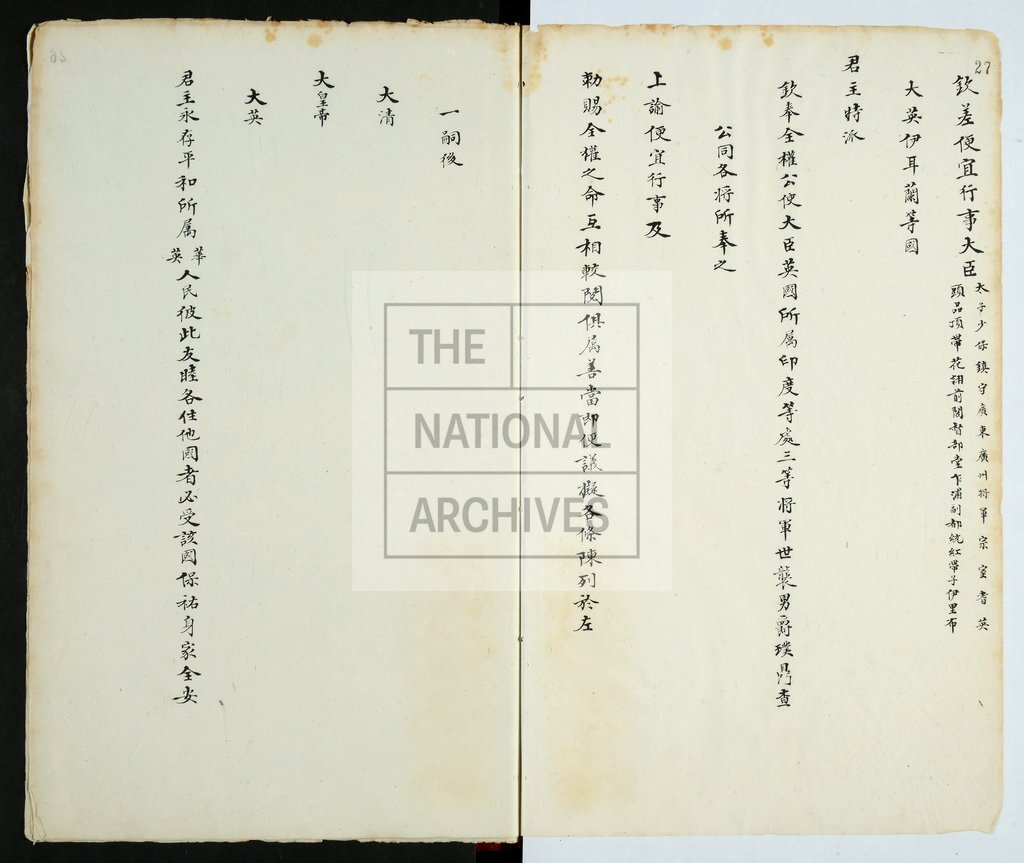 27
欽差便宜行事大臣
太子少保鎮守廣東廣州將軍宗室耆英
頭品頂帶花翎前閣督部堂乍浦副都統紅帶子伊里布
大英伊耳蘭等國
君主特派
欽奉全權公使大臣英國所属印度等處三等將軍世襲男爵璞鼎查
公同各將所奉之
上諭便宜行事及
勅賜全權之命互相較閱俱属善當即便議擬各條陳列於左
一嗣後
大清
大皇帝
大英
君主永存平和所属華英人民彼此友睦各住他國者必受該國保祐身家全安
26
THE
NATIONAL
ARCHIVES